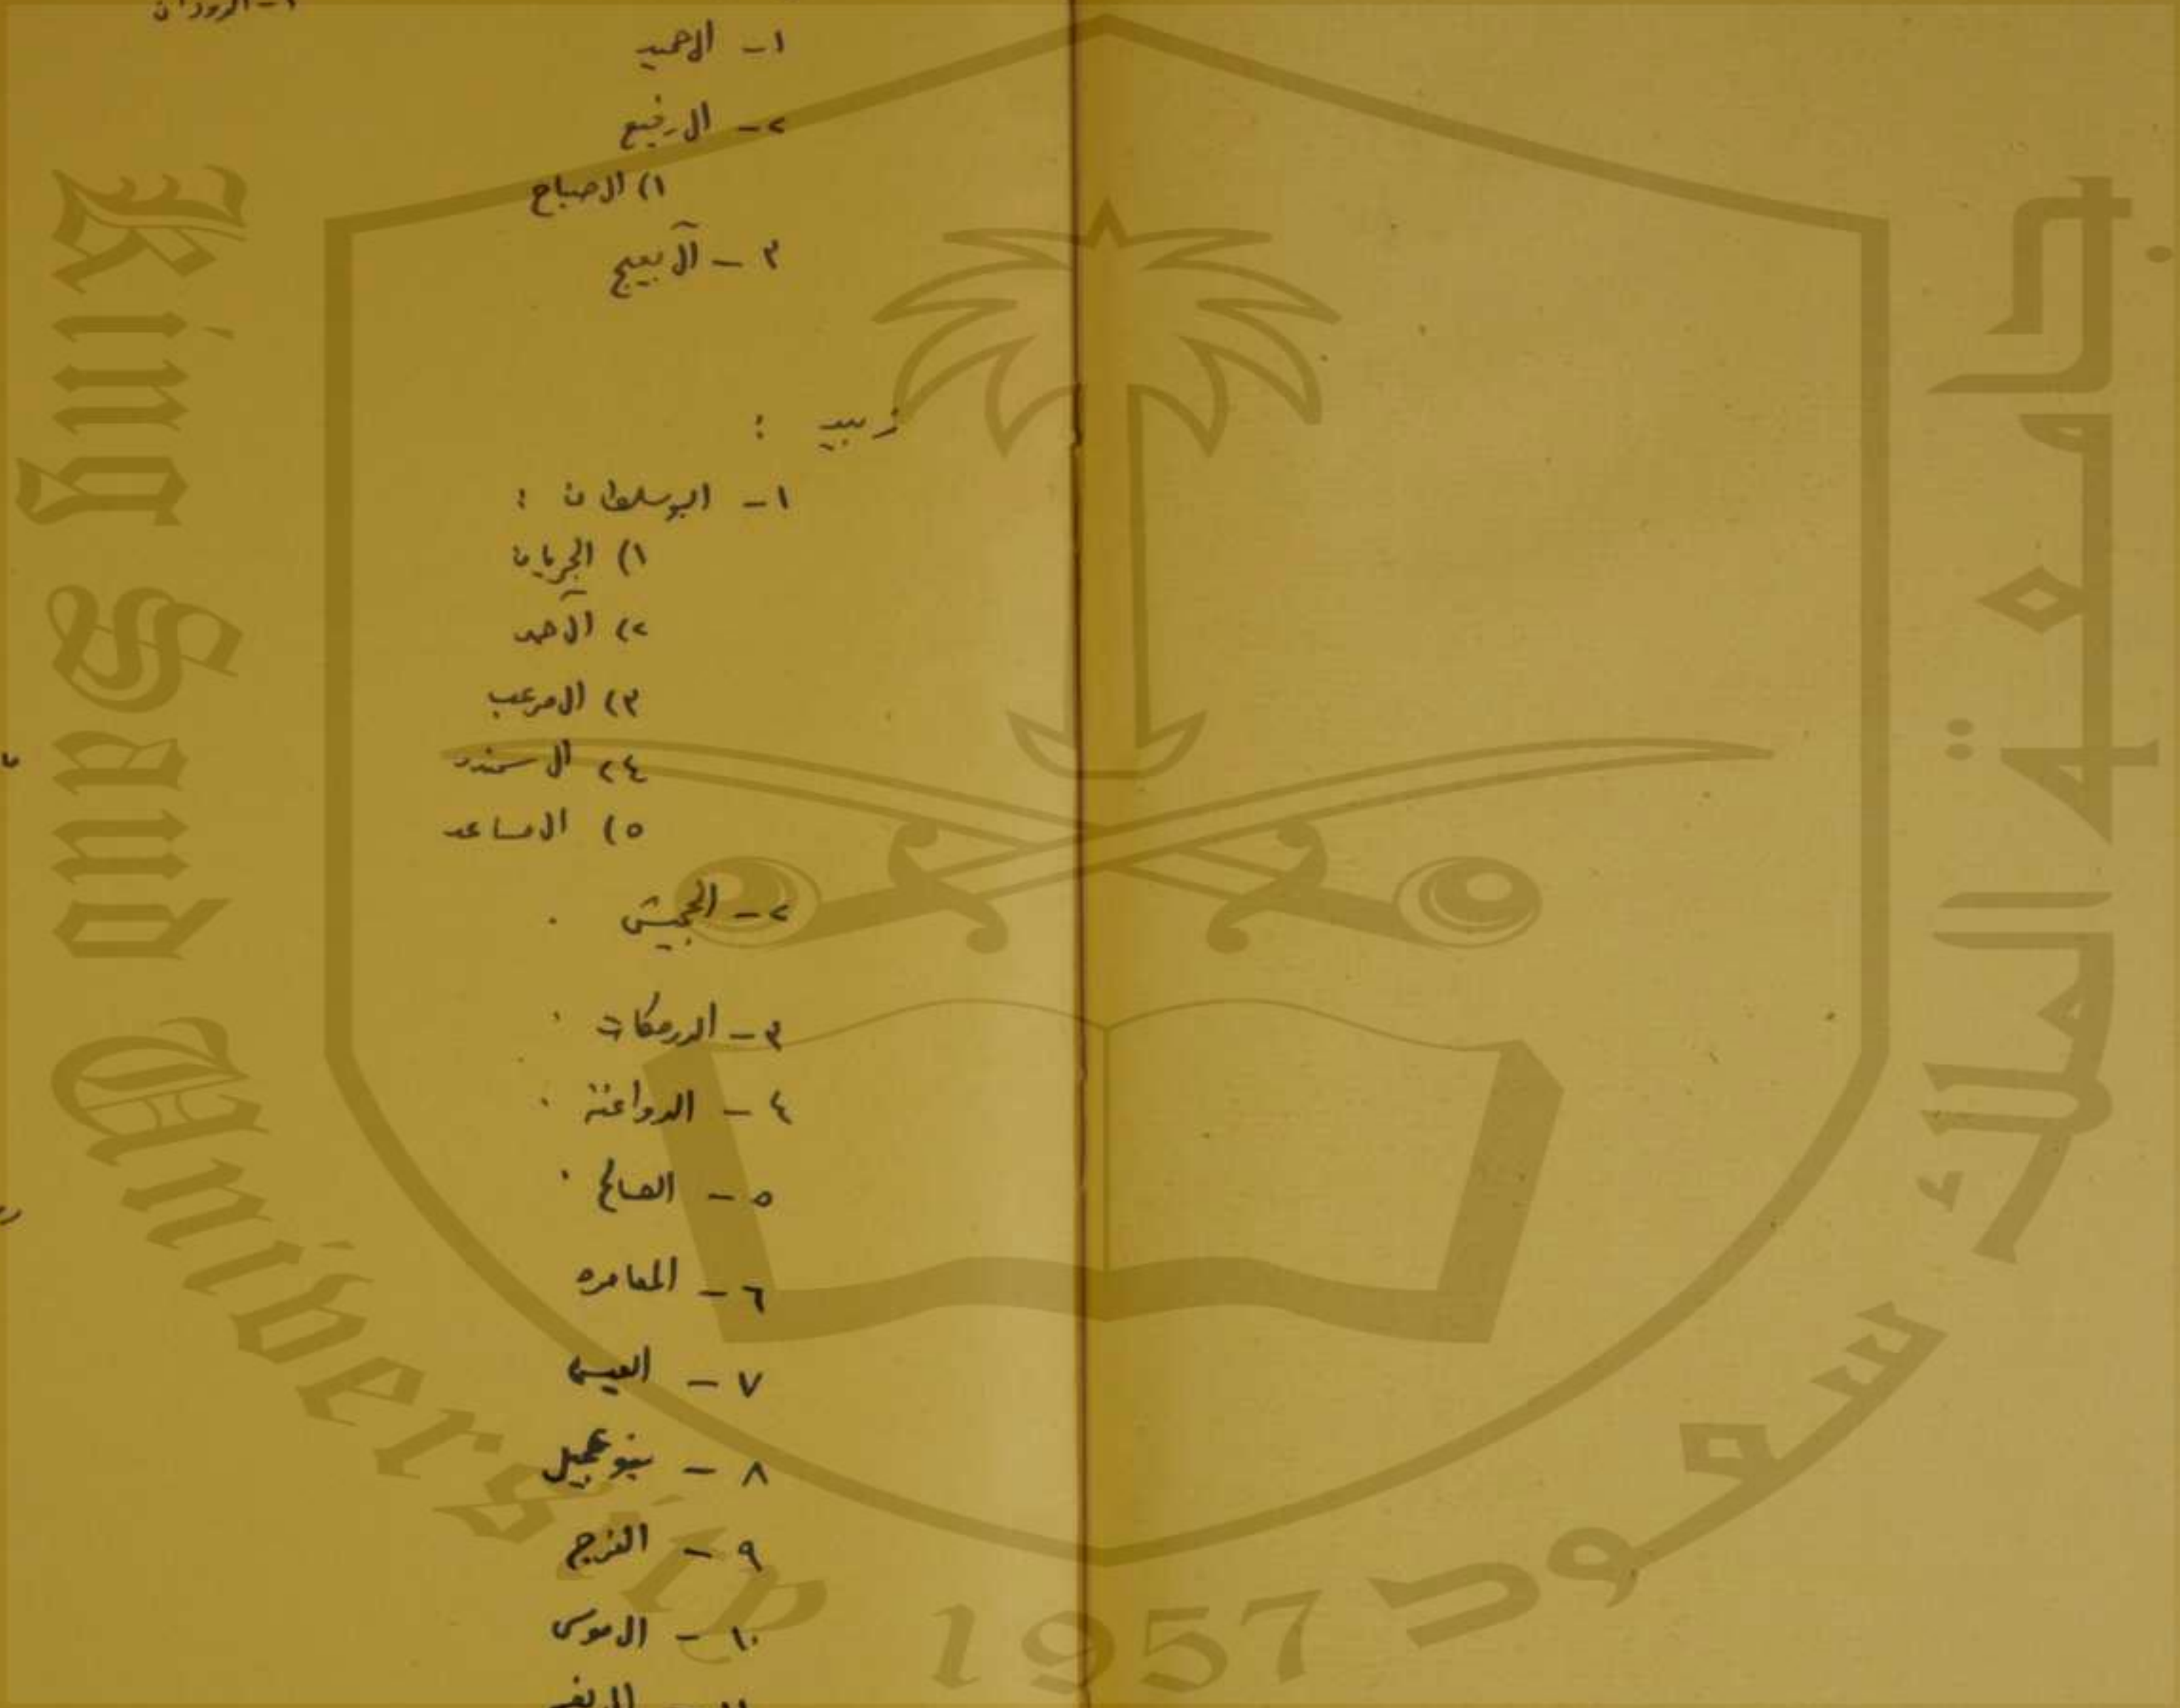 ١- ال حميد
٢- ال رفيع
١) ال صباح
٣- آل بعيج
زبيد :
١- البوسلطان :
١) الجريان
٢) ال حمد
٣) ال مرعب
٤) ال سند
٥) ال مساعد
٢- الجحيش .
٣- الدرمكات .
٤- الدواغنة .
٥- الصالح .
٦- المعامره
٧- العيسى
٨- بنو عجيل
٩- الفرج
١٠- ال موسى
King Saud University 1957
جامعة الملك سعود